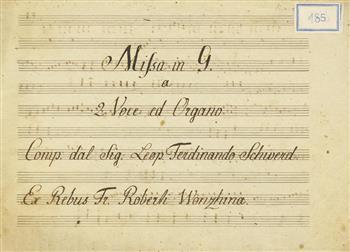 185.
Missa in G.
a
2 Voce ed Organo.
Comp. dal Sig. Leop. Ferdinando Schwerd.
Ex Rebus Fr. Roberti Wonzhina.